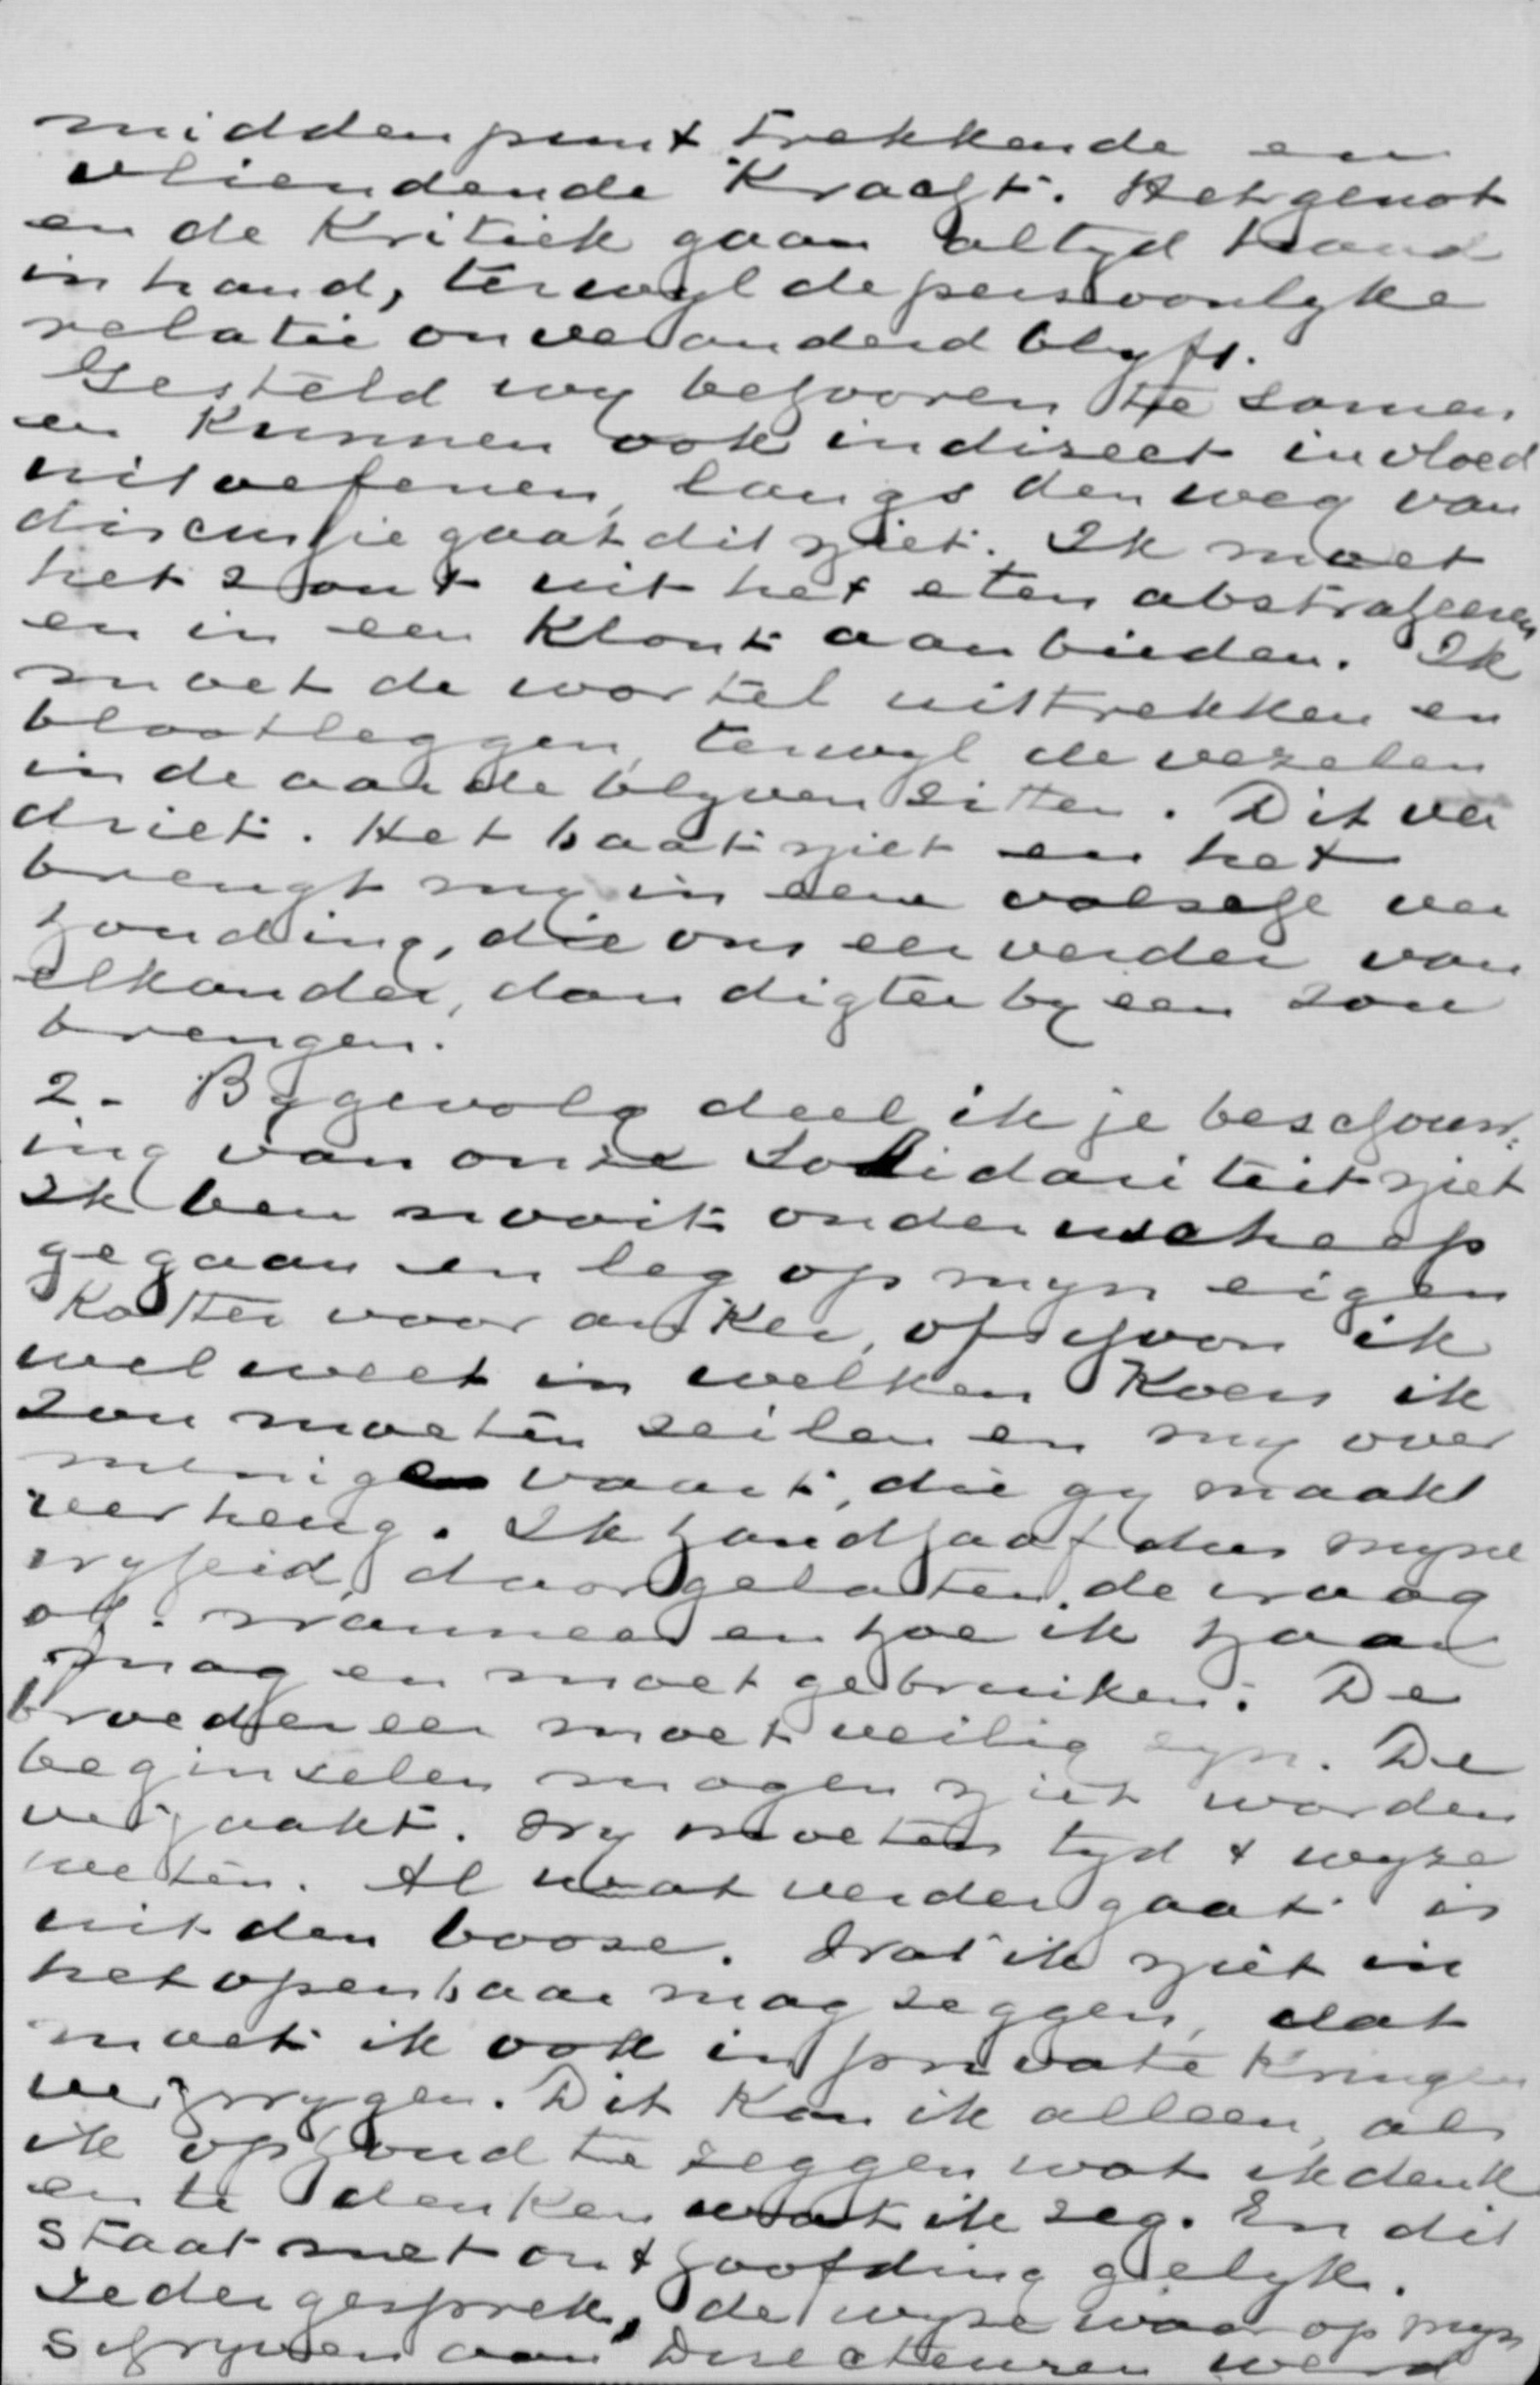 middenpunt trekkende en
vliendende Kracht. Het genot
en de Kritiek gaan altyd hand
in hand, terwyl de persoonlyke
relatie onveranderd blyft.
Gesteld wy behooren te samen
en Kunnen ook indirect invloed
uitoefenen, langs den weg van
discussie gaat dit niet. Ik moet
het zout uit het eten abstraheeren
en in een Klont aanbieden. Ik
moet de wortel uittrekken en
blootleggen, terwyl de vezelen
in de aarde blyven zitten. Dit ver
driet. Het baat niet en het
brengt my in een valsche ver
houding, die ons eer verder van
elkander, dan digter by een zou
brengen.
2 - Bygevolg deel ik je beschouw:
ing van onze Solidariteit niet
Ik ben nooit onder uw scheep
gegaan en leg op myn eigen
Kotter voor anker, ofschoon ik
wel weet in welken Koers ik
zou moeten zeilen en my over
menige vaart, die gy maakt
zeer heug. Ik handhaaf dus myne
vryheid, daargelaten de vraag
of. wanneer en hoe ik haar
mag en moet gebruiken. De
broeder eer moet veilig zyn. De
beginselen mogen niet worden
verzaakt. Wy moeten tyd & wyze
weten. Al wat verder gaat is
uit den booze. Wat ik niet in
het openbaar mag zeggen, dat
moet ik ook in private Kringen
verzwygen. Dit Kan ik alleen, als
ik ophoud te zeggen wat ik denk
en te denken wat ik zeg. En dit
staat met onthoofding gelyk.
Ieder gesprek, de wyze waarop myn
schryven aan Directeuren werd